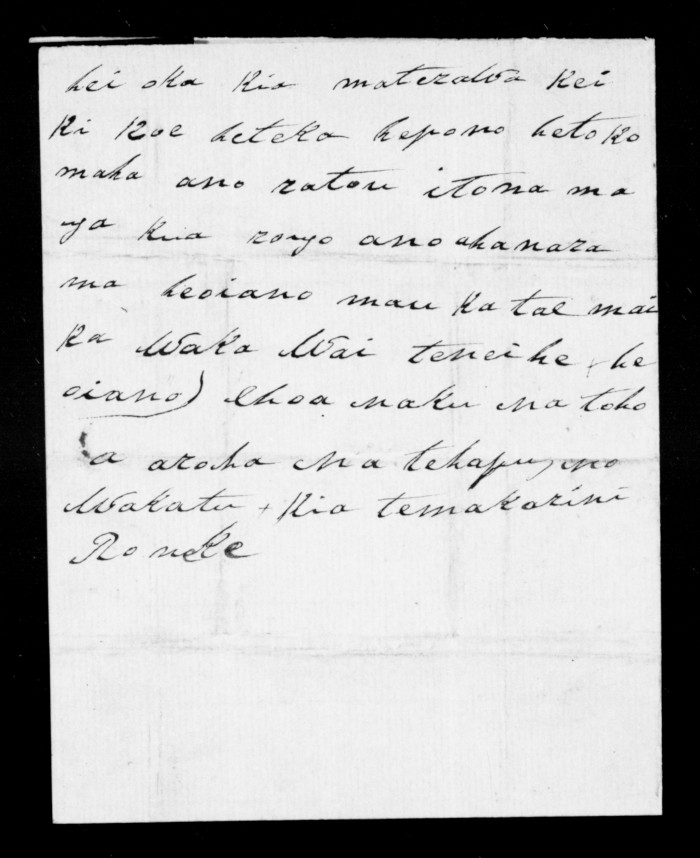 hei oka kia materawa kei
ki koe heteka hepono hetoko
maha ano ratou itona ma
nga kiia rongo ano ahanara
ma heoiano mau ka tae mai
ka Waka Wai tenei he + he
oiano) Ehoa naku na toho
a aroha Na tehapu, no
Wakatu + Kia temakarini
Ro neke